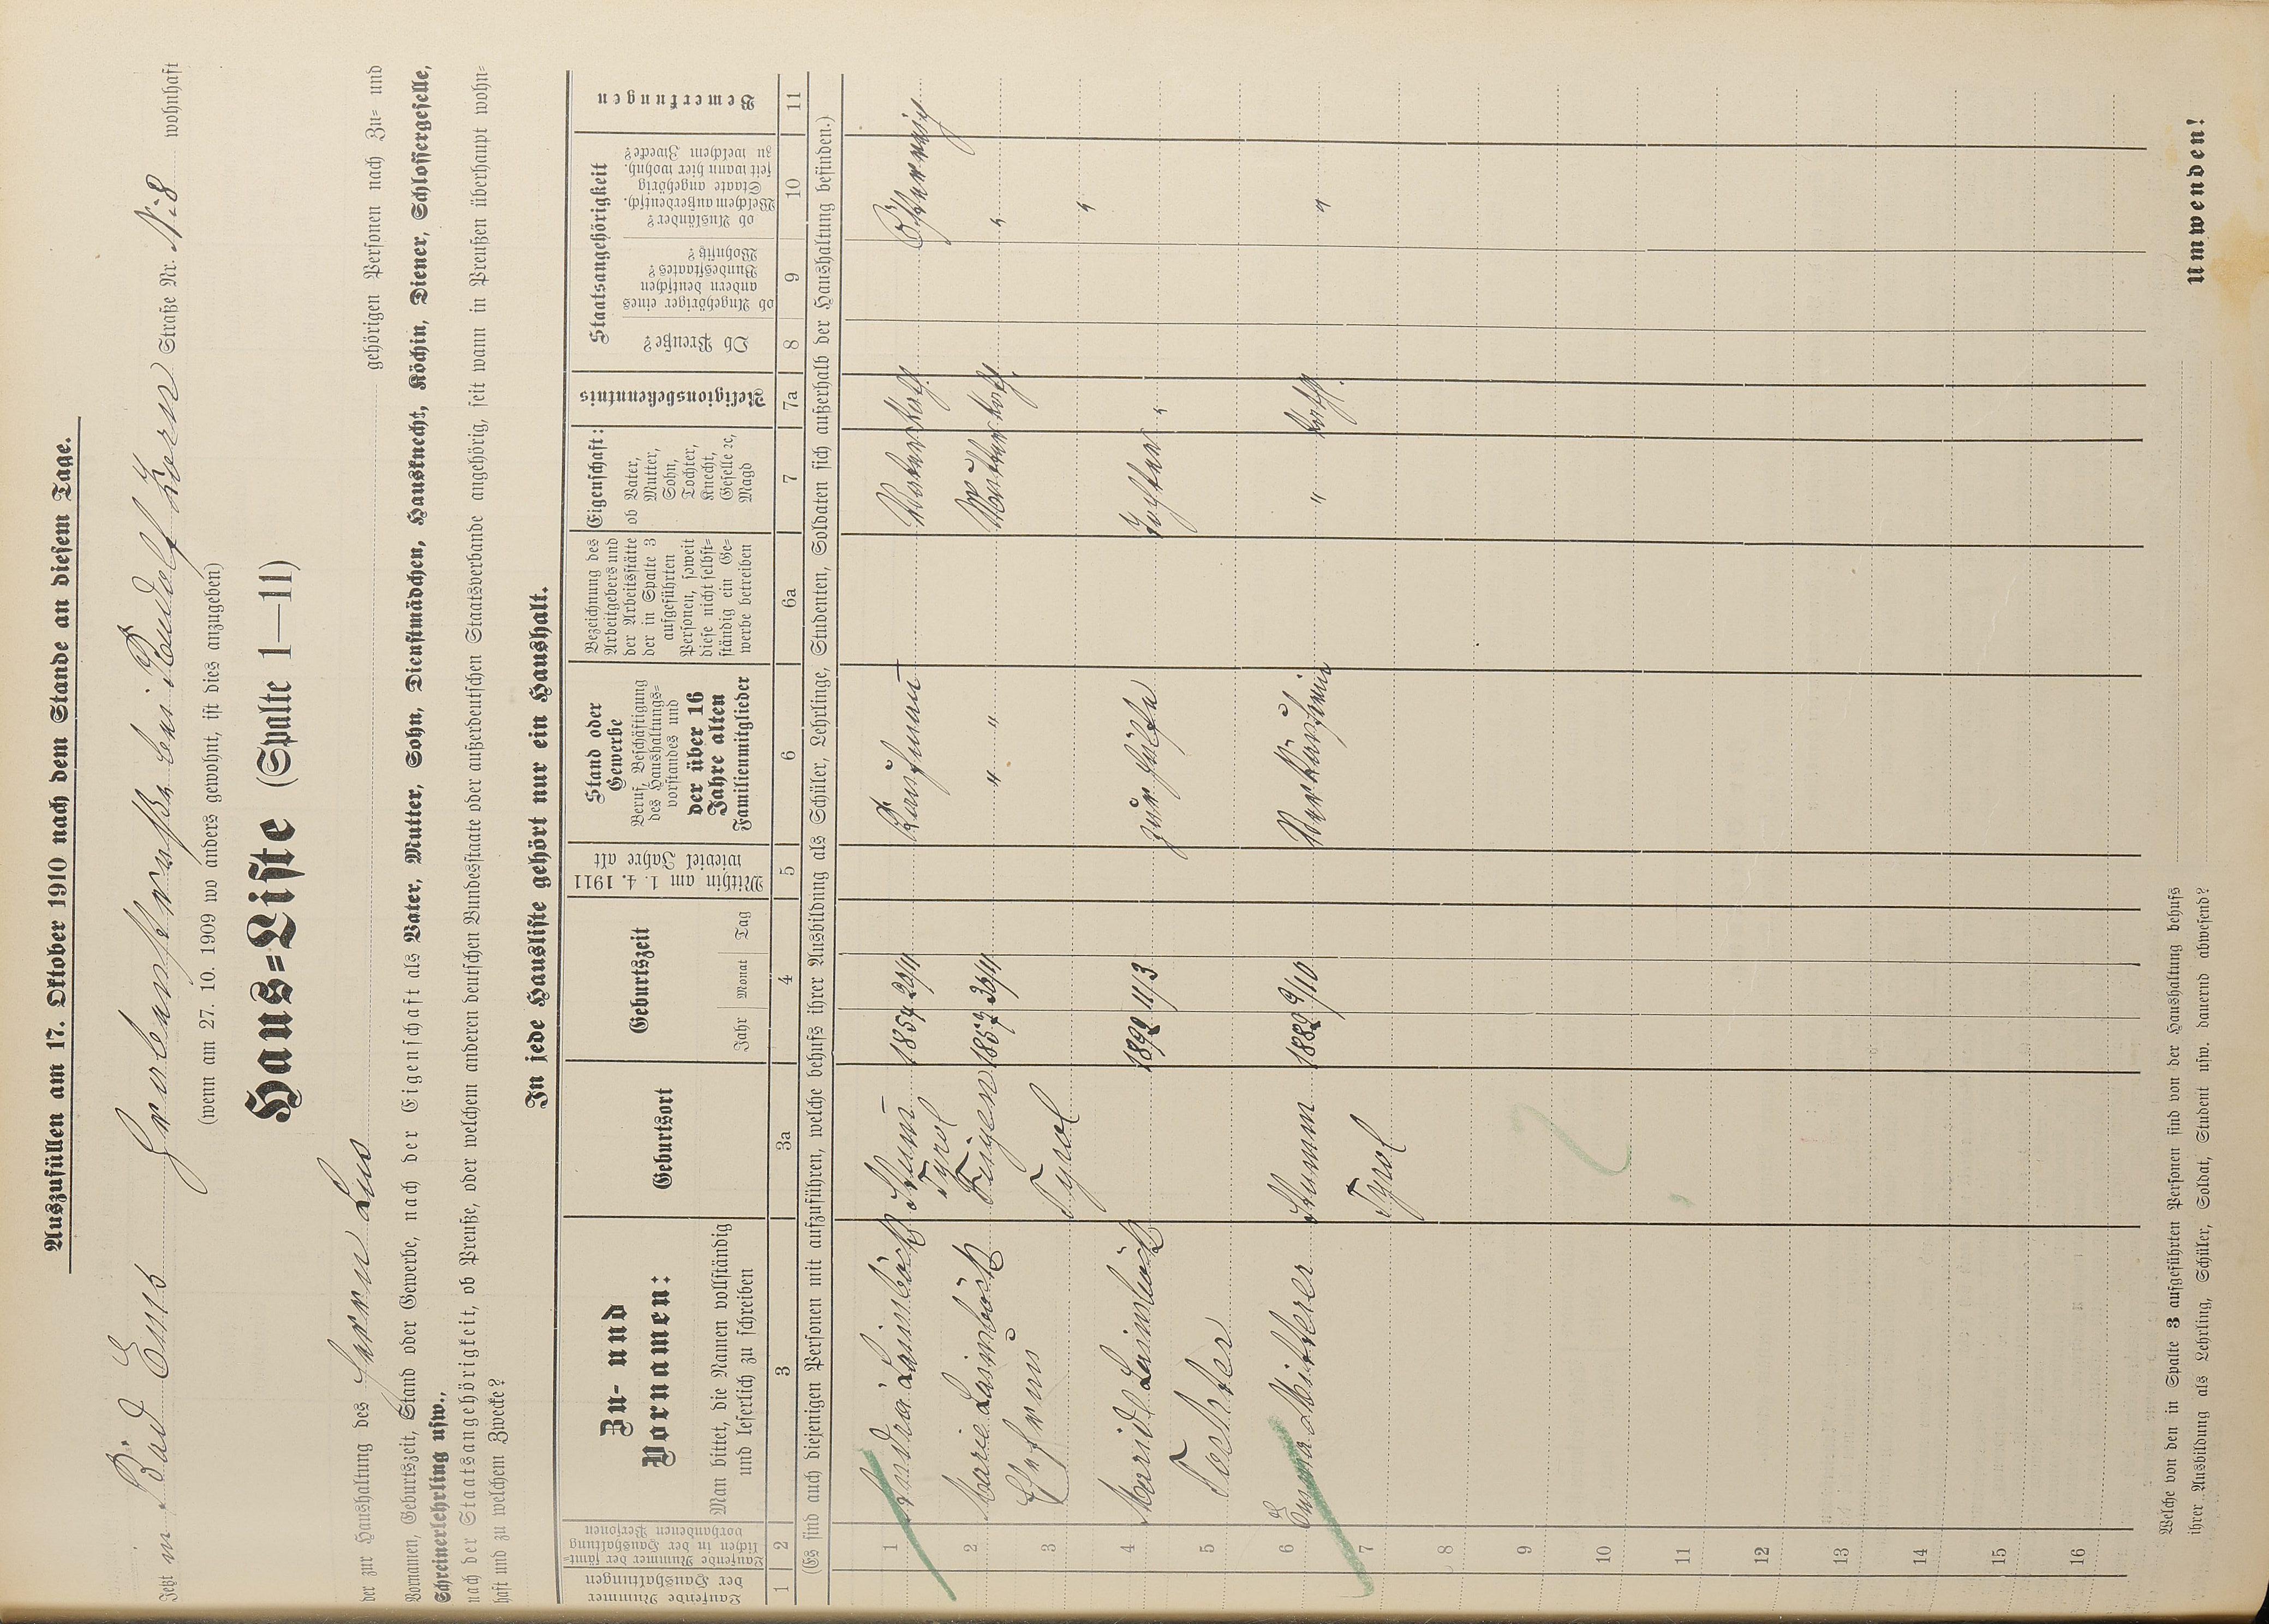 Auszufüllen am 17. Oktober 1910 nach dem Stande an diesem Tage.
Jetzt in Bad Ems Grabenstrasse bei Rudolf Kern Straße Nr. N. 8 wohnhaft
(wenn am 27. 10. 1909 wo anders gewohnt, ist dies anzugeben)
Haus=Liste (Spalte 1—11)
der zur Haushaltung des Herrn Lus gehörigen Personen nach Zu= und
Vornamen, Geburtszeit, Stand oder Gewerbe, nach der Eigenschaft als Vater, Mutter, Sohn, Dienstmädchen, Hausknecht, Köchin, Diener, Schlossergeselle,
Schreinerlehrling usw.,
nach der Staatsangehörigkeit, ob Preuße, oder welchem anderen deutschen Bundesstaate oder außerdeutschen Staatsverbande angehörig, seit wann in Preußen überhaupt wohn=
haft und zu welchem Zwecke?
In jede Hausliste gehört nur ein Haushalt.
Laufende Nummer der Haushaltungen
Laufende Nummer der sämt=lichen in der Haushaltung vorhandenen Personen
Zu- und
Vornamen:
Man bittet, die Namen vollständig
und leserlich zu schreiben
Geburtsort
Geburtszeit
Jahr Monat Tag
Mithin am 1. 4. 1911
wieviel Jahre alt
Stand oder
Gewerbe
Beruf, Beschäftigung
des Haushaltungs=
vorstandes und
der über 16
Jahre alten
Familienmitglieder
Bezeichnung des
Arbeitgebers und
der Arbeitsstätte
der in Spalte 3
aufgeführten
Personen, soweit
diese nicht selbst=
ständig ein Ge=
werbe betreiben
Eigenschaft:
ob Vater,
Mutter,
Sohn,
Tochter,
Knecht,
Geselle ꝛc,
Magd
Religionsbekenntnis
Staatsangehörigkeit
Ob Preuße?
ob Angehöriger eines
andern deutschen
Bundesstaates?
Wohnsitz?
ob Ausländer?
Welchem außerdeutsch.
Staate angehörig
seit wann hier wohnh.
zu welchem Zwecke?
Bemerkungen
1 2 3 3a 4 5 6 6a 7 7a 8 9 10 11
(Es sind auch diejenigen Personen mit aufzuführen, welche behufs ihrer Ausbildung als Schüler, Lehrlinge, Studenten, Soldaten sich außerhalb der Haushaltung befinden.)
1 Andrä Laimböck Stumm 1854 29/11 Kaufmann Vater kath. Österreich
Tyrol
2 Marie Laimböck Fügen 1857 30/11 " " Mutter kath. "
3 Ehefrau Tyrol "
4 Maridl Laimböck 1892 11/3 zur Hülfe Tochter "
5 Tochter
6 Emma Mitterer Stumm 1889 9/10 Verkäuferin " kath. "
7 Tyrol
8
9
10
11
12
13
14
15
16
Welche von den in Spalte 3 aufgeführten Personen sind von der Haushaltung behufs
ihrer Ausbildung als Lehrling, Schüler, Soldat, Student usw. dauernd abwesend?
Umwenden!